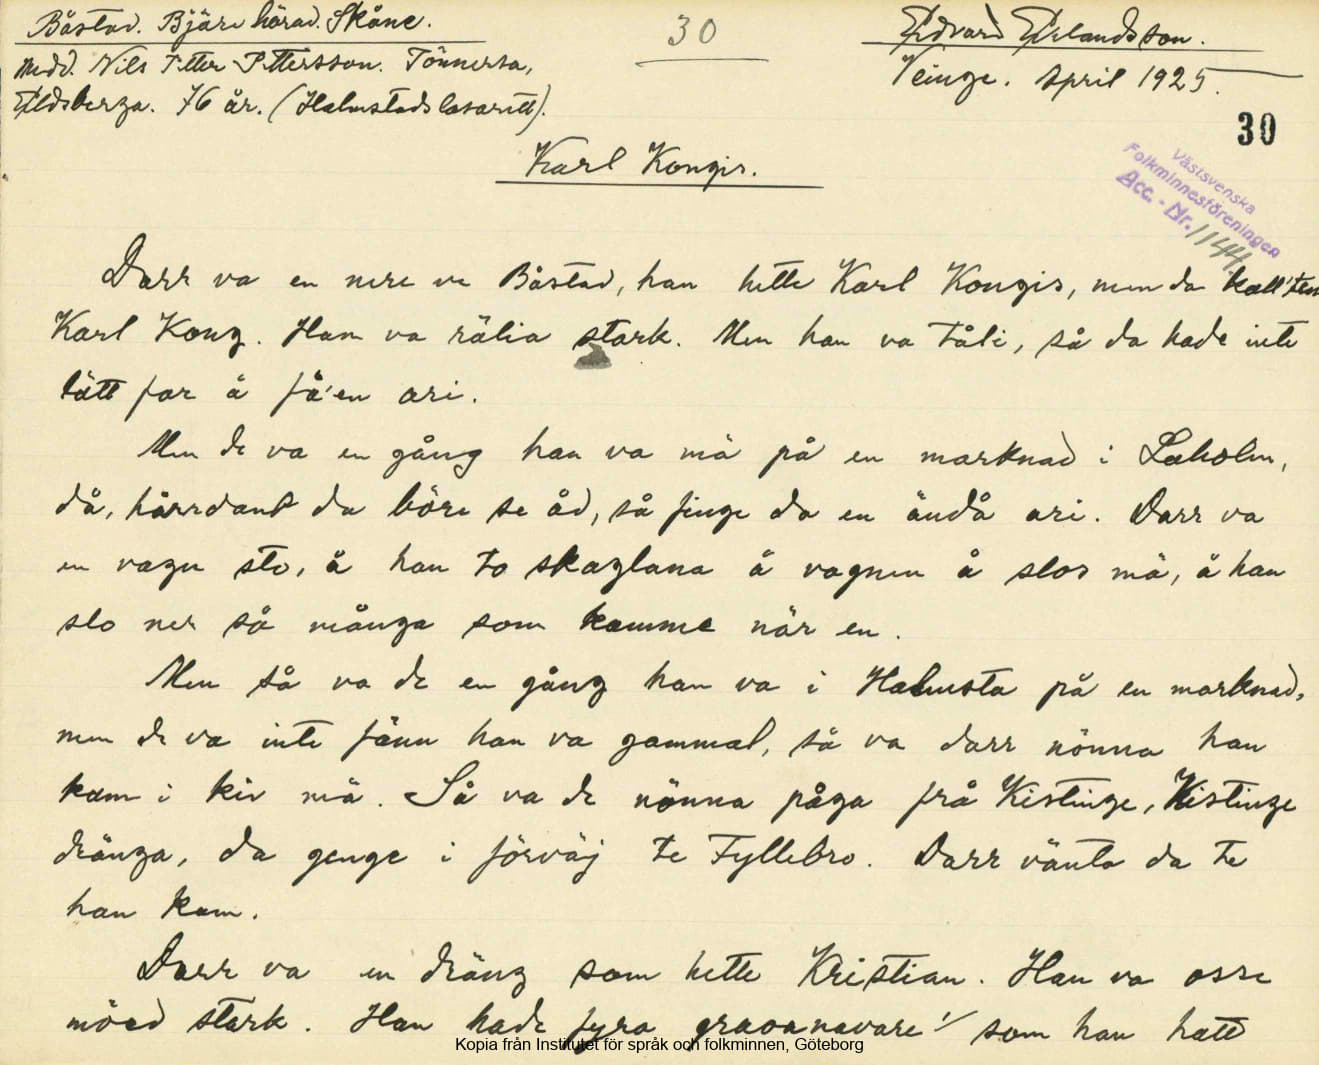 Båstad. Bjäre härad. Skåne.
30
Edvard Erlandsson.
Medd. Nils Petter Pettersson. Tönnersa,
Veinge. April 1925.
Eldsberga. 76 år. (Halmstads lasarett).
30
Karl Kongis.
Västsvenska
Folkminnesföreningen
Acc. - Nr. 1144.
Darr va en nere ve Båstad, han hette Karl Kongis, men da kall'ten
Karl Kong. Han va rälia stark. Men han va tåli, så da hade inte
lätt for å få'en ari.
Men de va en gång han va mä på en marknad i Laholm,
då, hårrdant da böre se åd, så finge da en ändå ari. Darr va
en vagn sto, å han to skaglana å vagnen å slos mä, å han
slo ner så många som kamme när en.
Men så va de en gång han va i Halmsta på en marknad,
men de va inte fånn han va gammal, så va darr nönna han
kom i kiv mä. Så va de nönna påga frå Kistinge, Kistinge
dränga, da genge i förväj te Fyllebro. Darr vänta da te
han kom.
Darr va en dräng som hette Kristian. Han va osse
möed stark. Han hade fyra graoanavare 1/ som han hatt
Kopia från Institutet för språk och folkminnen, Göteborg